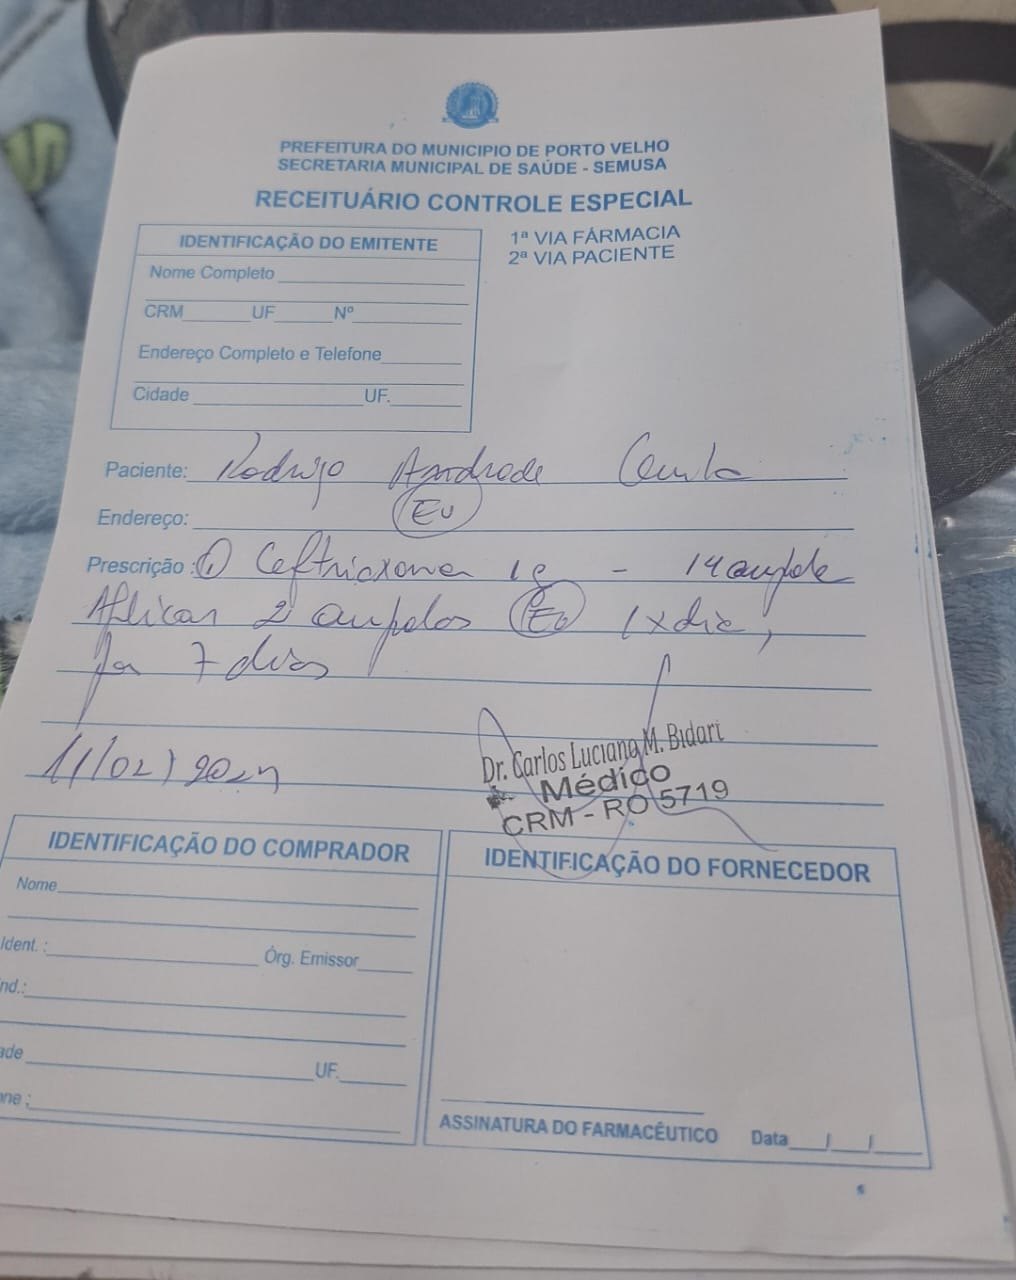 PREFEITURA DO MUNICIPIO DE PORTO VELHO
SECRETARIA MUNICIPAL DE SAÚDE - SEMUSA
RECEITUÁRIO CONTROLE ESPECIAL
IDENTIFICAÇÃO DO EMITENTE
1ª VIA FÁRMACIA
2ª VIA PACIENTE
Nome Completo
CRM UF Nº
Endereço Completo e Telefone
Cidade UF.
Paciente: Rodrigo Andrade
Endereço: EV
Prescrição : 1 Ceftriaxona 1g - 14 ampola
Aplicar 2 ampolas EV 1xdia,
por 7 dias
11/02/2024
Dr. Carlos Luciana M. Bidari
Médico
CRM - RO 5719
IDENTIFICAÇÃO DO COMPRADOR
Nome
Ident. : Órg. Emissor
nd.:
ade UF.
one :
IDENTIFICAÇÃO DO FORNECEDOR
ASSINATURA DO FARMACÊUTICO Data __/__/__